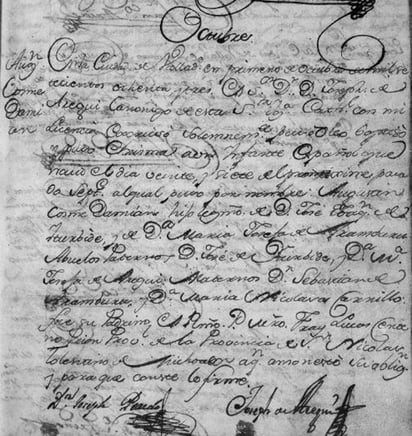 Octubre
En la Ciudad de Vallad. en primero de Octubre de mil se
tecientos ochenta, y tres, el S. D. D. Joseph de
Arregui Canonigo de esta Sta. Ygla. Cathl. con mi
Licencia exorcisó solemnemte. puso Oleo, bautisó
y puso Chrisma a un Infante Español que
nació el dia veinte, y siete de
do Septe. al qual puso por nombre Augustin
Cosme Damian, hijo legmo. de D. José Joaqn. de
Yturbide, y de Da. Maria Josefa de Aramburu
Abuelos Paternos D. José de Yturbide, y Da. Ma.
Josefa de Arregui, Maternos Dn. Sebastian de
Aramburu, y Da. Maria Nicolasa Carrillo.
fue su Padrino, el Rmo. P. Mro. Fray Lucas
Prov. de la Provincia de Sn. Nicolas
Tolentino de Michoacan aq. amonesté su oblig.
y para que conste lo firmé.
Joseph Joseph de Arregui
Aug.
Cosme
Dami
an